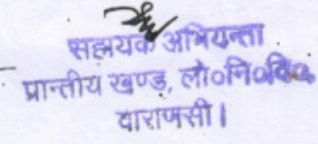 सहायक अभियन्ता
प्रान्तीय खण्ड, लो०नि०वि०,
वाराणसी।